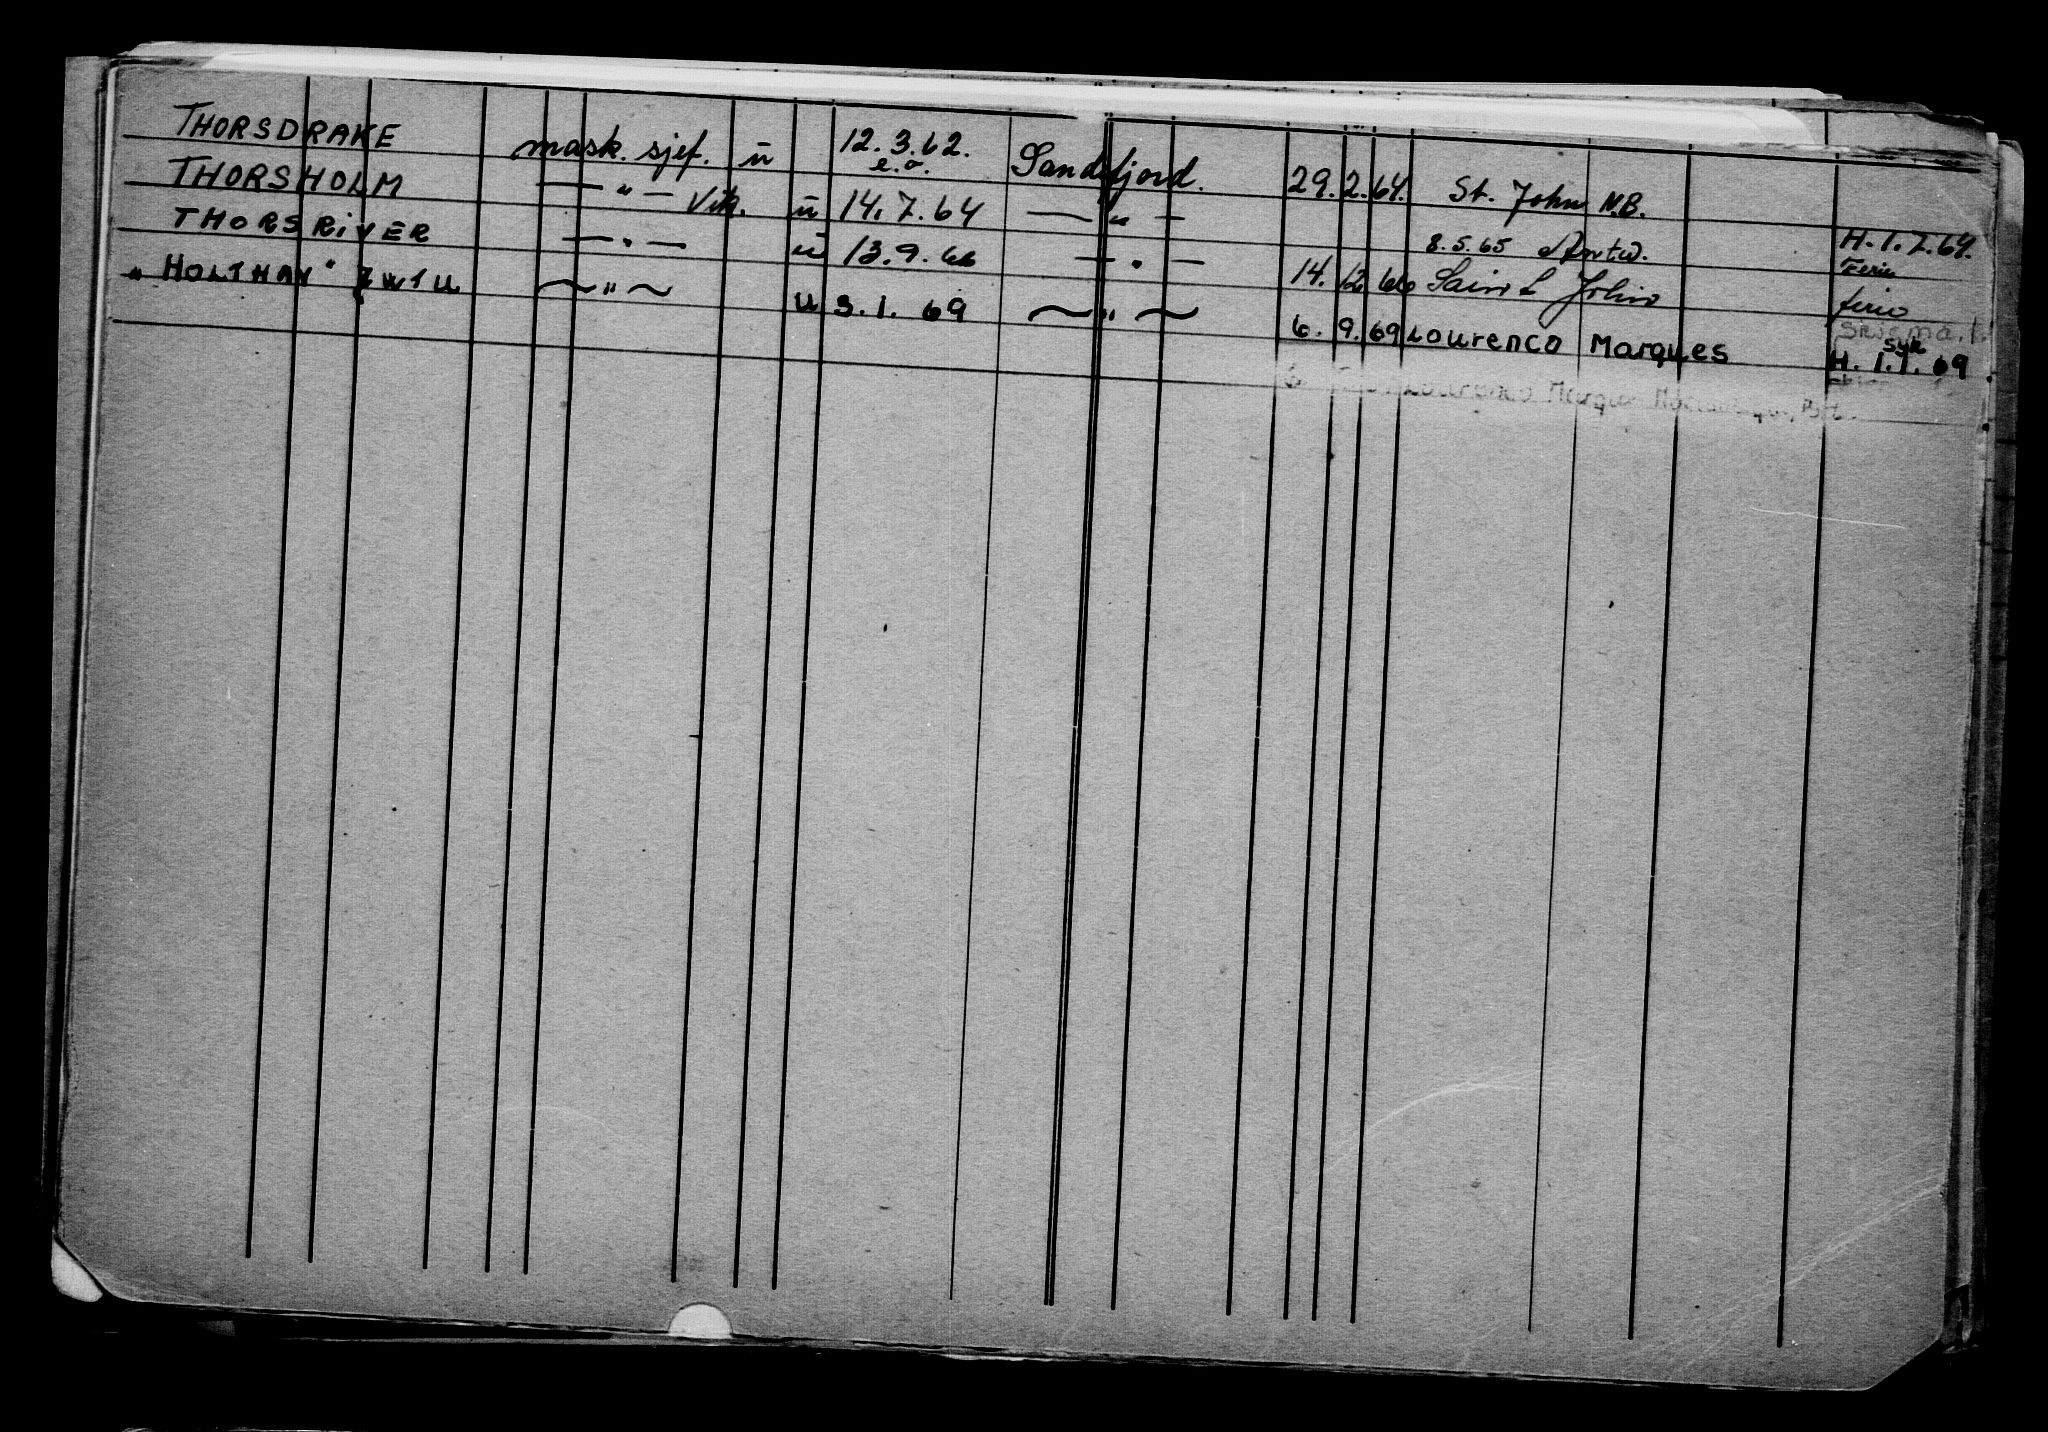 THORSDRAKE mask. sjef. ū 12.3.62. e.o. Sandefjord. 29.2.64. St. John N.B. H.1.7.64.
THORSHOLM — " — Vik. ū 14.7.64 — " — 8.5.65 Antw. Ferie
THORSRIVER — " — ū 13.9.66 — " — 14.12.66 Saint John ferie
"HOLTHAV" ZW1U ~ " ~ u 3.1.69 ~ " ~ 6.9.69 Lourenco Marques syk H.1.1.69
Lourenco Marques